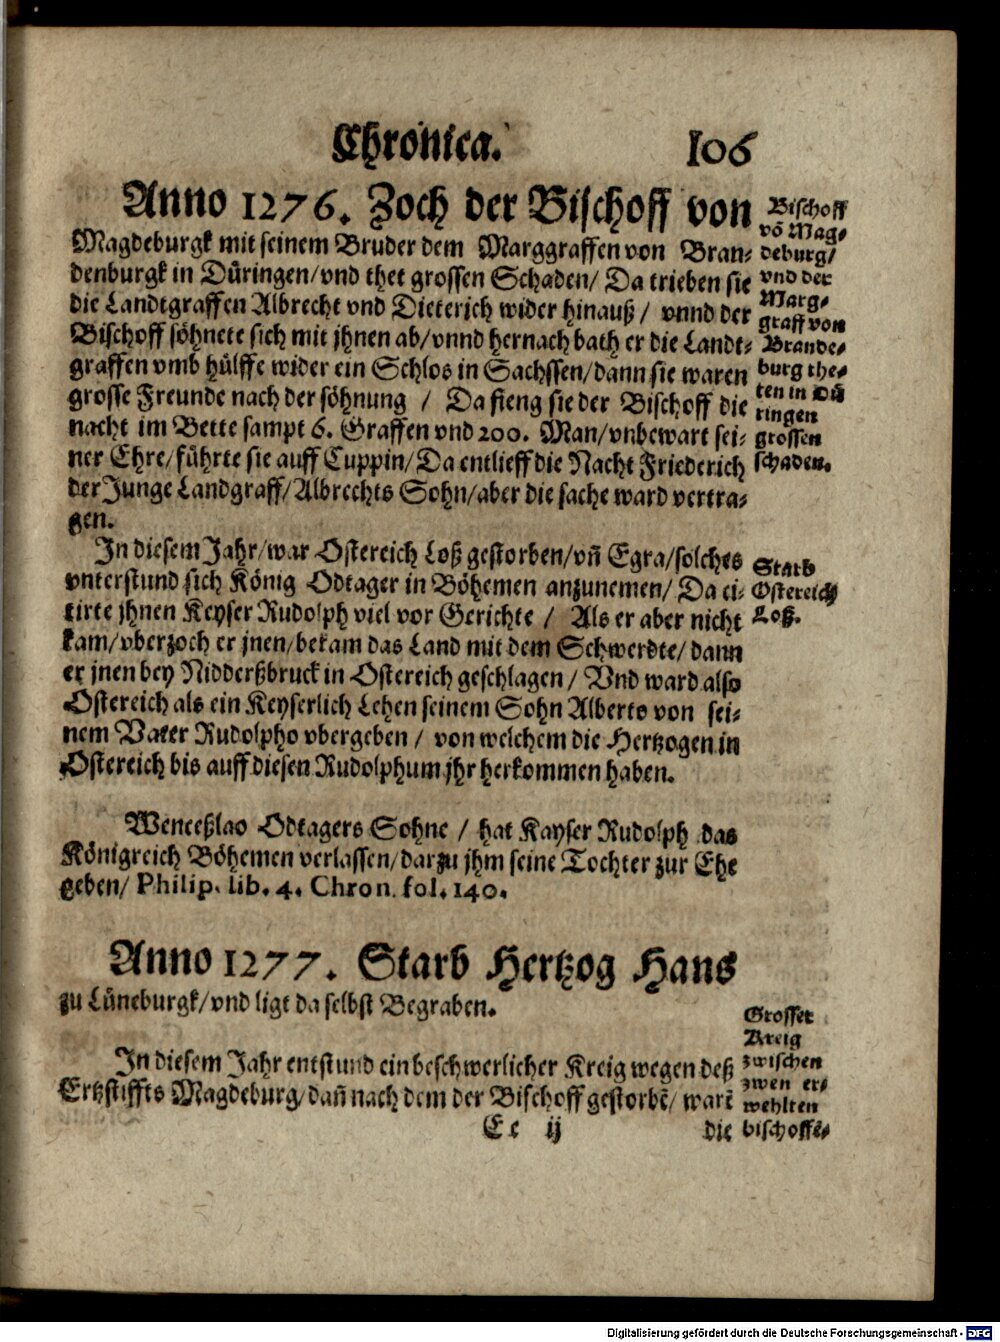 Chronica. 106
Anno 1276. Zoch der Bischoff von
Magdeburgk mit seinem Bruder dem Marggraffen von Bran-
denburgk in Düringen/vnd thet grossen Schaden/ Da trieben sie
die Landtgraffen Albrecht vnd Dieterich wider hinauß/ vnnd der
Bischoff söhnete sich mit jhnen ab/vnnd hernach bath er die Landt-
graffen vmb hülffe wider ein Schlos in Sachssen/dann sie waren
grosse Freunde nach der söhnung / Da fieng sie der Bischoff die
nacht im Bette sampt 6. Graffen vnd 200. Man/vnbewart sei-
ner Ehre/führte sie auff Cuppin/Da entlieff die Nacht Friederich
der Junge Landgraff/Albrechts Sohn/aber die sache ward vertra-
gen.
Bischoff
võ Mag-
deburg/
vnd der
Marg-
graff von
Brande-
burg the-
ten in Dü
ringen
grossen
schaden.
In diesem Jahr/war Ostereich Loß gestorben/vñ Egra/solches
vnterstund sich König Odtager in Böhemen anzunemen/ Da ci-
tirte jhnen Keyser Rudolph viel vor Gerichte / Als er aber nicht
kam/vberzoch er jnen/bekam das Land mit dem Schwerdte/ dann
er jnen bey Nidderßbruck in Ostereich geschlagen/ Vnd ward also
Ostereich als ein Keyserlich Lehen seinem Sohn Alberto von sei-
nem Vater Rudolpho vbergeben/ von welchem die Hertzogen in
Ostereich bis auff diesen Rudolphum jhr herkommen haben.
Starb
Ostereich
Loß.
Wenceßlao Odtagers Sohne / hat Kayser Rudolph das
Königreich Böhemen verlassen/darzu jhm seine Tochter zur Ehe
geben/ Philip. lib. 4. Chron. fol. 140.
Anno 1277. Starb Hertzog Hans
zu Lüneburgk/vnd ligt da selbst Begraben.
In diesem Jahr entstund ein beschwerlicher Kreig wegen deß
Ertzstiffts Magdeburg/dañ nach dem der Bischoff gestorbẽ/ warẽ
Grosser
Kreig
zwischen
zwen er-
wehlten
bischoffẽ-
Ee ij die
Digitalisierung gefördert durch die Deutsche Forschungsgemeinschaft - DFG